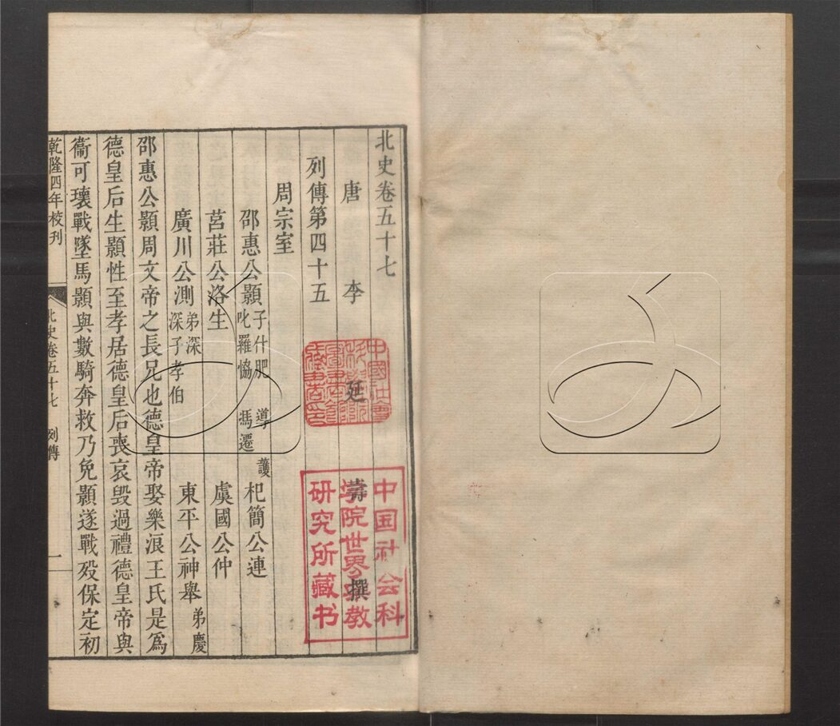 北史卷五十七
唐 李 延 壽 撰
列傳第四十五
周宗室
邵惠公顥 子什肥 導 護 叱羅協 馮遷 杞簡公連
莒莊公洛生 虞國公仲
廣川公測 弟深 深子孝伯 東平公神舉 弟慶
邵惠公顥周文帝之長兄也德皇帝娶樂浪王氏是爲
德皇后生顥性至孝居德皇后喪哀毀過禮德皇帝與
衞可瓌戰墜馬顥與數騎奔救乃免顥遂戰歿保定初
乾隆四年校刊 北史卷五十七 列傳 一
中国社会科
学院世界宗教
研究所藏书